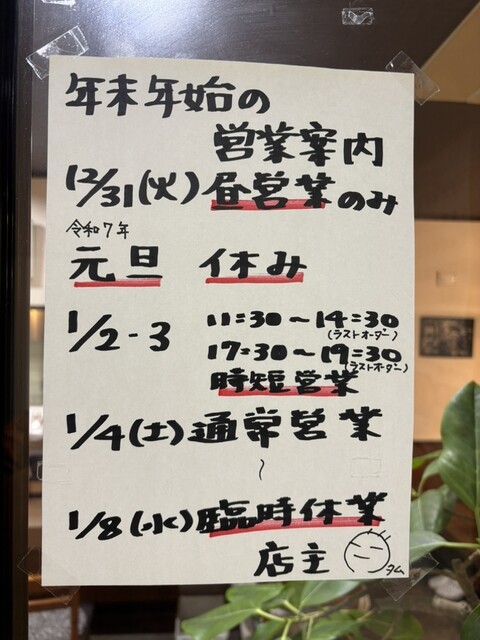 年末年始の
営業案内
12/31(火)昼営業のみ
令和7年
元旦 休み
1/2-3 11:30～14:30
(ラストオーダー)
17:30～19:30
(ラストオーダー)
時短営業
1/4(土)通常営業
～
1/8(水)臨時休業
店主
タム